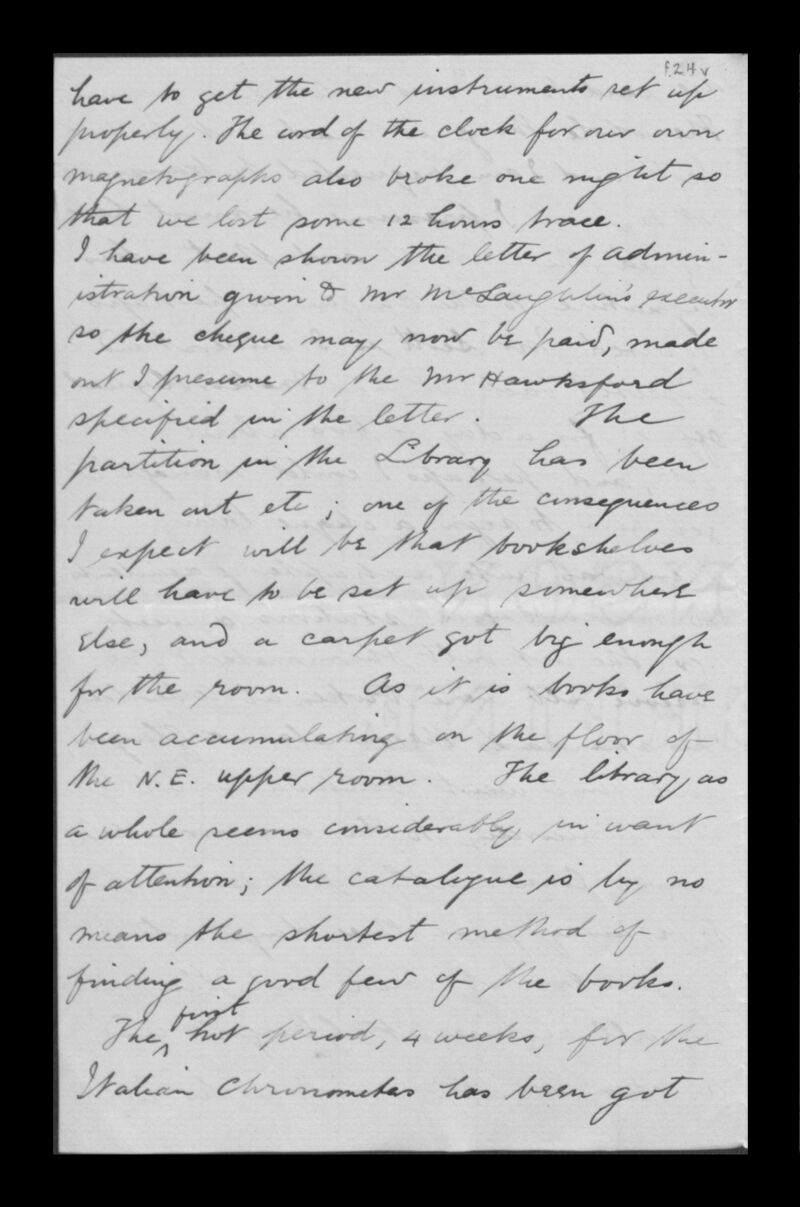 f.24v
have to get the new instruments set up
properly. The cord of the clock for our own
magnetographs also broke one night so
that we lost some 12 hours trace.
I have been shown the letter of admin-
istration given to Mr McLaughlin's executor
so the cheque may now be paid, made
out I presume to the Mr Hawksford
specified in the letter. The
partition in the Library has been
taken out etc; one of the consequences
I expect will be that bookshelves
will have to be set up somewhere
else, and a carpet got big enough
for the room. As it is books have
been accumulating on the floor of
the N.E. upper room. The library as
a whole seems considerably in want
of attention; the catalogue is by no
means the shortest method of
finding a good few of the books.
first
The ^ hot period, 4 weeks, for the
Italian Chronometers has been got